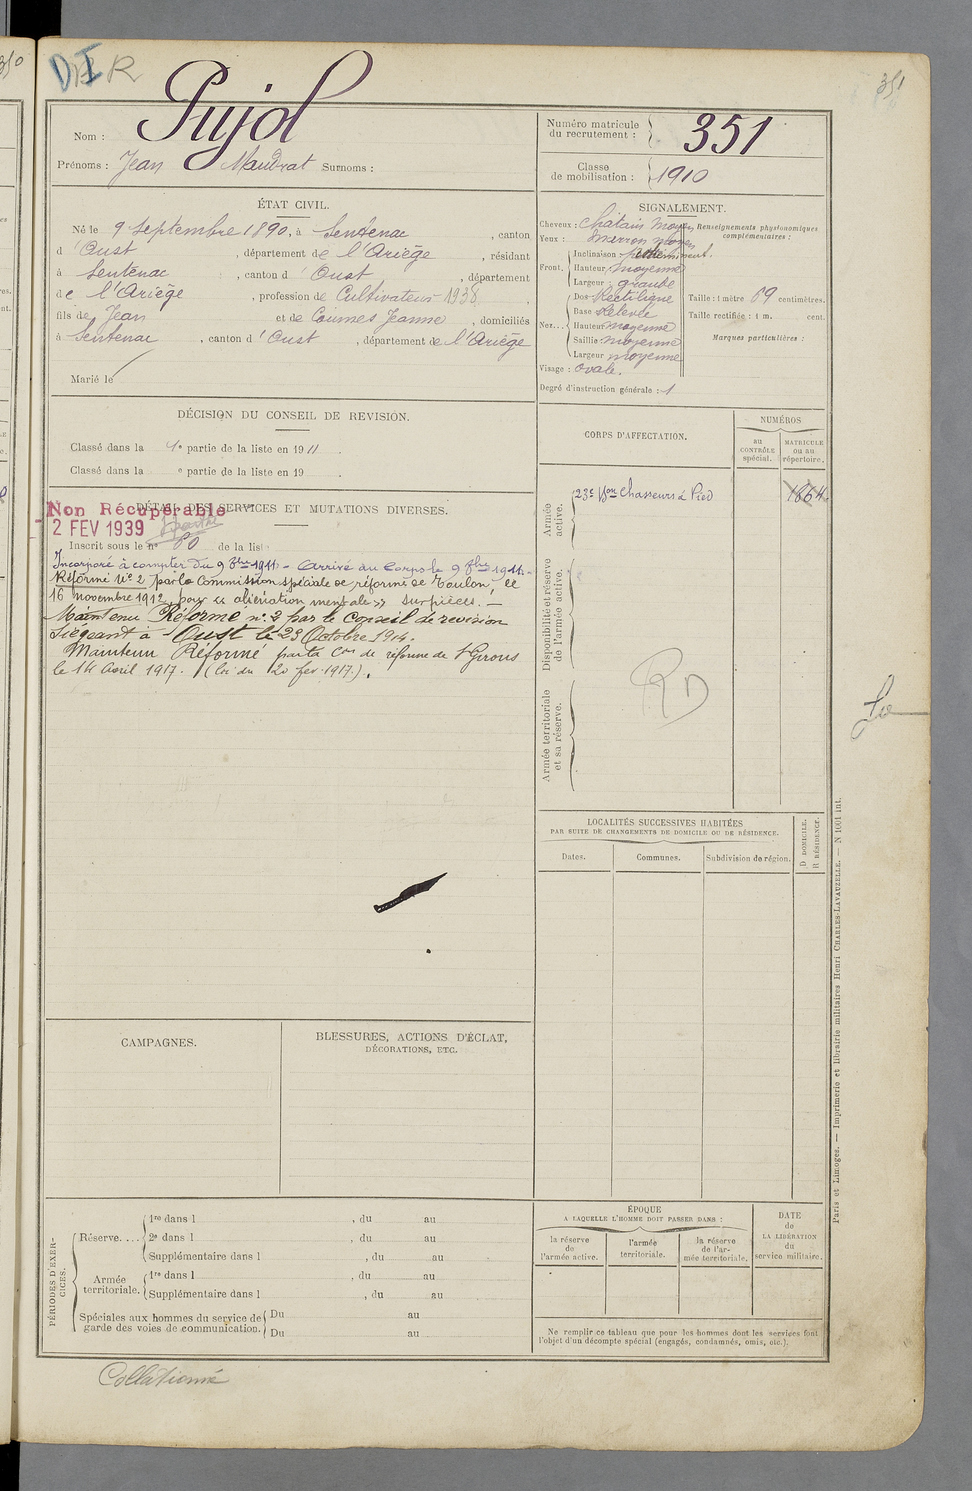 350
351
DIR
Nom : Pujol
Prénoms : Jean Maudrat Surnoms :
Numéro matricule du recrutement : 351
Classe de mobilisation : 1910
ÉTAT CIVIL.
Né le 9 Septembre 1890, à Sentenac, canton
d'Oust, département de l'Ariège, résidant
à Sentenac, canton d'Oust, département
de l'Ariège, profession de Cultivateur 1938
fils de Jean et de Coumes Jeanne, domiciliés
à Sentenac, canton d'Oust, département de l'Ariège
Marié le
SIGNALEMENT.
Cheveux : Châtain moyen
Yeux : marron moyen
Front. Inclinaison : proéminent.
Hauteur moyenne
Largeur : grande
Nez... Dos Rectiligne
Base Relevée
Hauteur moyenne
Saillie moyenne
Largeur moyenne
Visage : ovale.
Renseignements physionomiques complémentaires :
Taille : 1 mètre 69 centimètres.
Taille rectifiée : 1 m. cent.
Marques particulières :
Degré d'instruction générale : 1
DÉCISION DU CONSEIL DE REVISION.
Classé dans la 1e partie de la liste en 1911.
Classé dans la e partie de la liste en 19 .
CORPS D'AFFECTATION.
NUMÉROS
au CONTRÔLE spécial.
MATRICULE ou au répertoire.
Armée active.
23e Bon Chasseurs à Pied
1864
Disponibilité et réserve de l'armée active.
RD
Armée territoriale et sa réserve.
DÉTAIL DES SERVICES ET MUTATIONS DIVERSES.
Non Récupérable
2 FEV 1939
Inscrit sous le n° 60 de la liste
Incorporé à compter du 9 8bre 1911 - Arrivé au Corps le 9 8bre 1911 -
Réformé N° 2 par la Commission spéciale de réforme de Toulon, le
16 novembre 1912, pour « aliénation mentale » sur pièces. -
Maintenu Réformé n° 2 par le Conseil de revision
siégeant à Oust le 23 Octobre 1914.
Maintenu Réformé par la Con de réforme de St Girons
le 14 avril 1917. (loi du 20 fev. 1917.).
LOCALITÉS SUCCESSIVES HABITÉES
PAR SUITE DE CHANGEMENTS DE DOMICILE OU DE RÉSIDENCE.
Dates.
Communes.
Subdivision de région.
D DOMICILE.
R RÉSIDENCE.
CAMPAGNES.
BLESSURES, ACTIONS D'ÉCLAT,
DÉCORATIONS, ETC.
PÉRIODES D'EXERCICES.
Réserve.... 1re dans l , du au
2e dans l , du au
Supplémentaire dans l , du au
Armée territoriale. 1re dans l , du au
Supplémentaire dans l , du au
Spéciales aux hommes du service de garde des voies de communication. Du au
Du au
ÉPOQUE
A LAQUELLE L'HOMME DOIT PASSER DANS :
la réserve de l'armée active.
l'armée territoriale.
la réserve de l'armée territoriale.
DATE de LA LIBÉRATION du service militaire.
Ne remplir ce tableau que pour les hommes dont les services font
l'objet d'un décompte spécial (engagés, condamnés, omis, etc.).
Paris et Limoges. — Imprimerie et librairie militaires Henri CHARLES-LAVAUZELLE. — N 1001 int.
Collationné